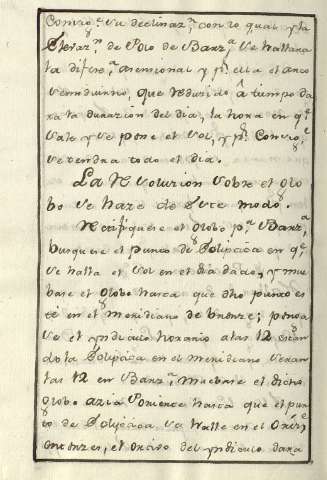 Conozc.ᵉ su declinaz.ⁿ con lo qual y la
Elevaz.ⁿ de Polo de Banz.ᵃ se hallara
la difer.ᵃ asensional y p.ʳ ella el arco
semidiurno, que reduzido â tiempo da
ra la durazion del dia, la hora en q.ᵉ
sale y se pone el Sol, y p.ʳ
se tendra todo el dia.
La Resoluzion sobre el glo
bo se haze de este modo.
Rectifiquese el Globo p.ᵃ Banz.ᵃ
busquese el punto de Ecliptica en q.ᵉ
se halla el Sol en el dia dado, y mue
base el Globo hasta que dho punto es
té en el meridiano de bronze; ponga
se el yndiculo horario a las 12 estan
do la Ecliptica en el meridiano seran
las 12 en Banz.ᵃ muebase el dicho
Globo azia Poniente hasta que el pun
to de Ecliptica se halle en el Orizᵗᵉ
entonzes, el yndiculo dara